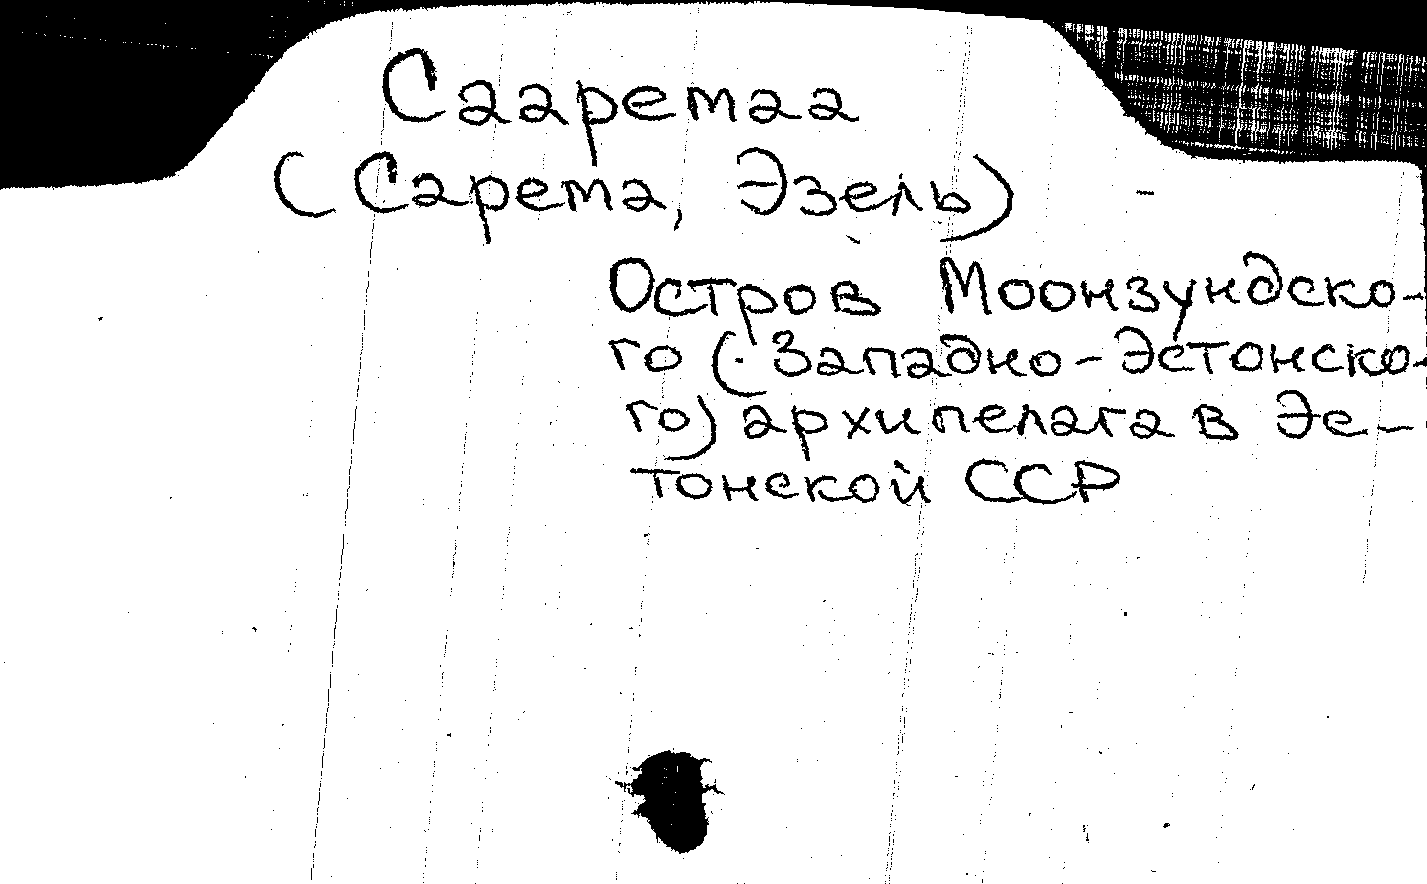 Сааремаа
(Сарема, Эзель) -
Остров Моонзундско-
го (Западно-Эстонско-
го) архипелага в Эс-
тонской ССР